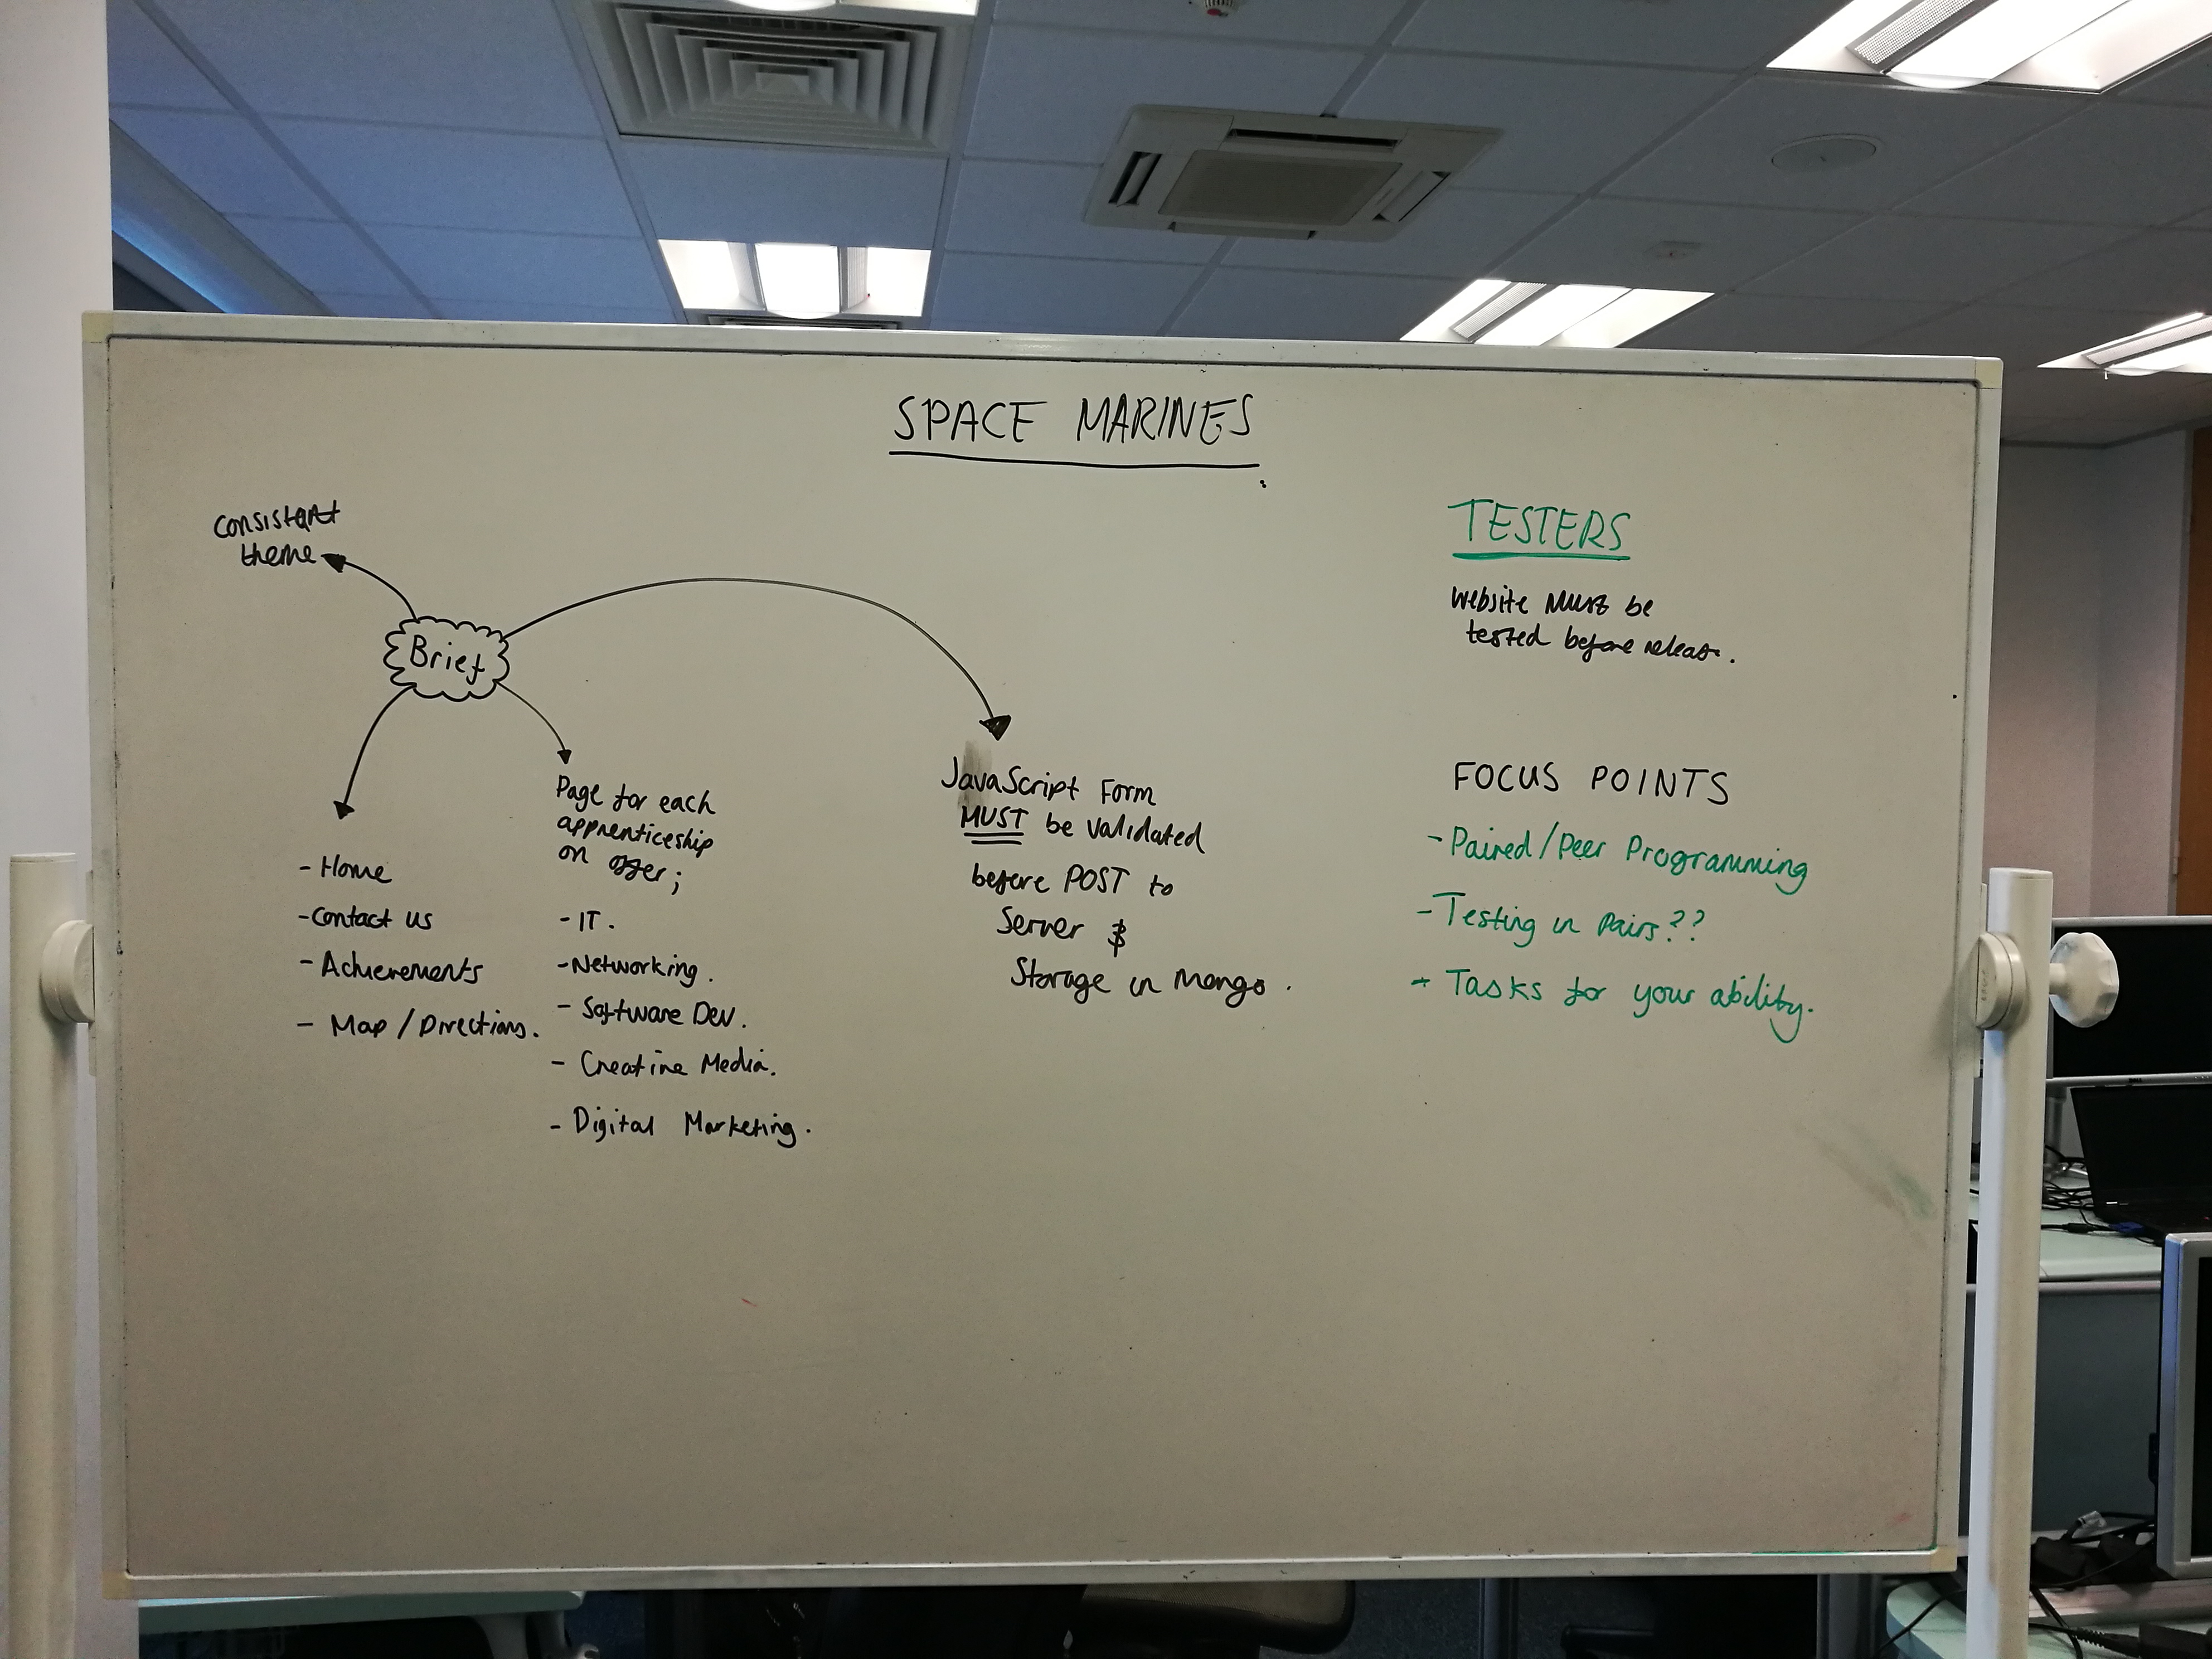 SPACE MARINES
consistant
theme
Brief
- Home
- Contact us
- Achievements
- Map / Directions.
Page for each
apprenticeship
on offer;
- IT.
- Networking.
- Software Dev.
- Creative Media.
- Digital Marketing.
JavaScript Form
MUST be validated
before POST to
Server &
Storage in Mongo.
TESTERS
Website MUST be
tested before release.
FOCUS POINTS
- Paired/Peer Programming
- Testing in Pairs??
- Tasks for your ability.